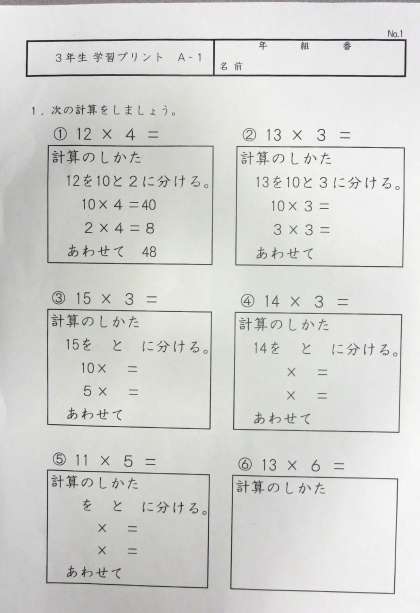 No.1
3年生 学習プリント A-1
年 組 番
名前
1．次の計算をしましょう。
① 12 × 4 ＝
計算のしかた
12を10と2に分ける。
10×4＝40
2×4＝8
あわせて 48
② 13 × 3 ＝
計算のしかた
13を10と3に分ける。
10×3＝
3×3＝
あわせて
③ 15 × 3 ＝
計算のしかた
15を と に分ける。
10× ＝
5× ＝
あわせて
④ 14 × 3 ＝
計算のしかた
14を と に分ける。
× ＝
× ＝
あわせて
⑤ 11 × 5 ＝
計算のしかた
を と に分ける。
× ＝
× ＝
あわせて
⑥ 13 × 6 ＝
計算のしかた